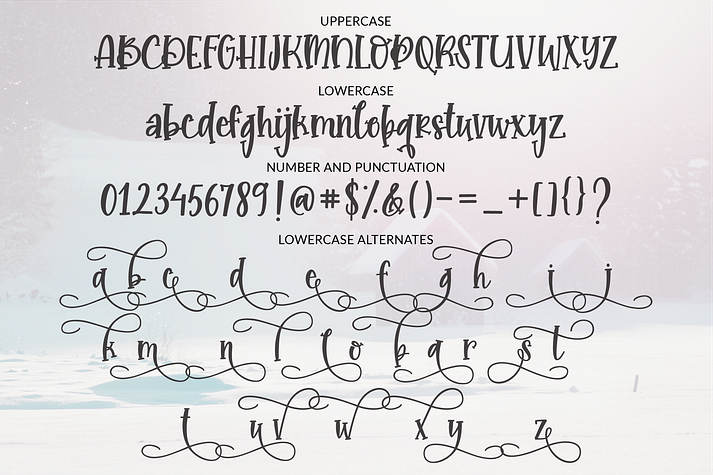 UPPERCASE
ABCDEFGHIJKMNLOPQRSTUVWXYZ
LOWERCASE
abcdefghijkmnlopqrstuvwxyz
NUMBER AND PUNCTUATION
0123456789!@#$%&()-=_+[]{}?
LOWERCASE ALTERNATES
a b c d e f g h i j
k m n l l o p q r s t
t u v w x y z